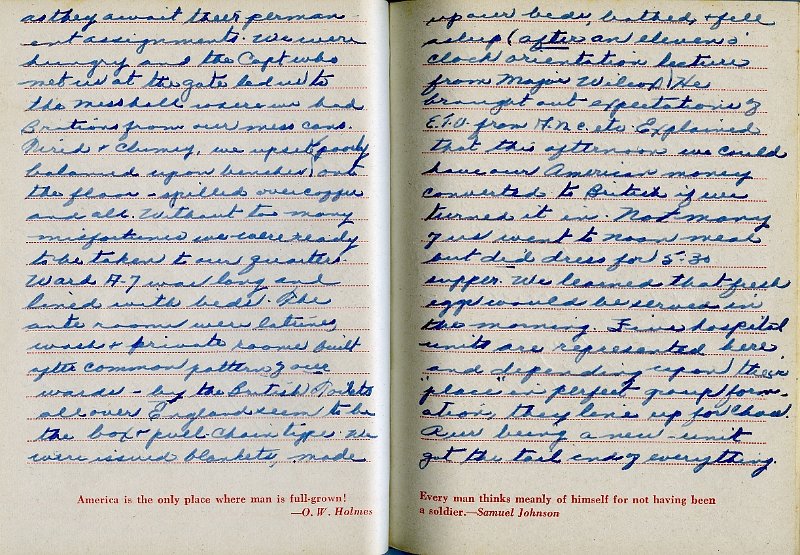 as they await their perman-
ent assignments. We were
hungry and the Capt who
met us at the gate led us to
the messhall where we had
Brations from our mess cans.
Tired + clumsy, we upset (poorly
balanced upon benches) onto
the floor - spilled over coffee
and all. Without too many
misfortunes we were ready
to be taken to our quarters
Ward A-7 was long and
lined with beds. The
ante rooms were latrine,
wash + private rooms built
after common pattern of our
wards - by the British Toilets
all over England seem to be
the box + pull chain type. We
were issued blankets, made
America is the only place where man is full-grown!
—O. W. Holmes
up our beds, bathed, + fell
asleep (after an eleven o'
clock orientation lecture
from Major Wilcox) He
brought out expectations of
E.T.O. from A.N.C. etc. Explained
that this afternoon we could
have our American money
converted to British if we
turned it in. Not many
of us went to noon meal
but did dress for 5:30
supper. We learned that fresh
eggs would be served in
the morning. Five hospital
units are represented here
and depending upon their
"place" in perfect group form-
ation, they line up for chow.
Ours being a new-unit
got the tail end of everything.
Every man thinks meanly of himself for not having been
a soldier.—Samuel Johnson